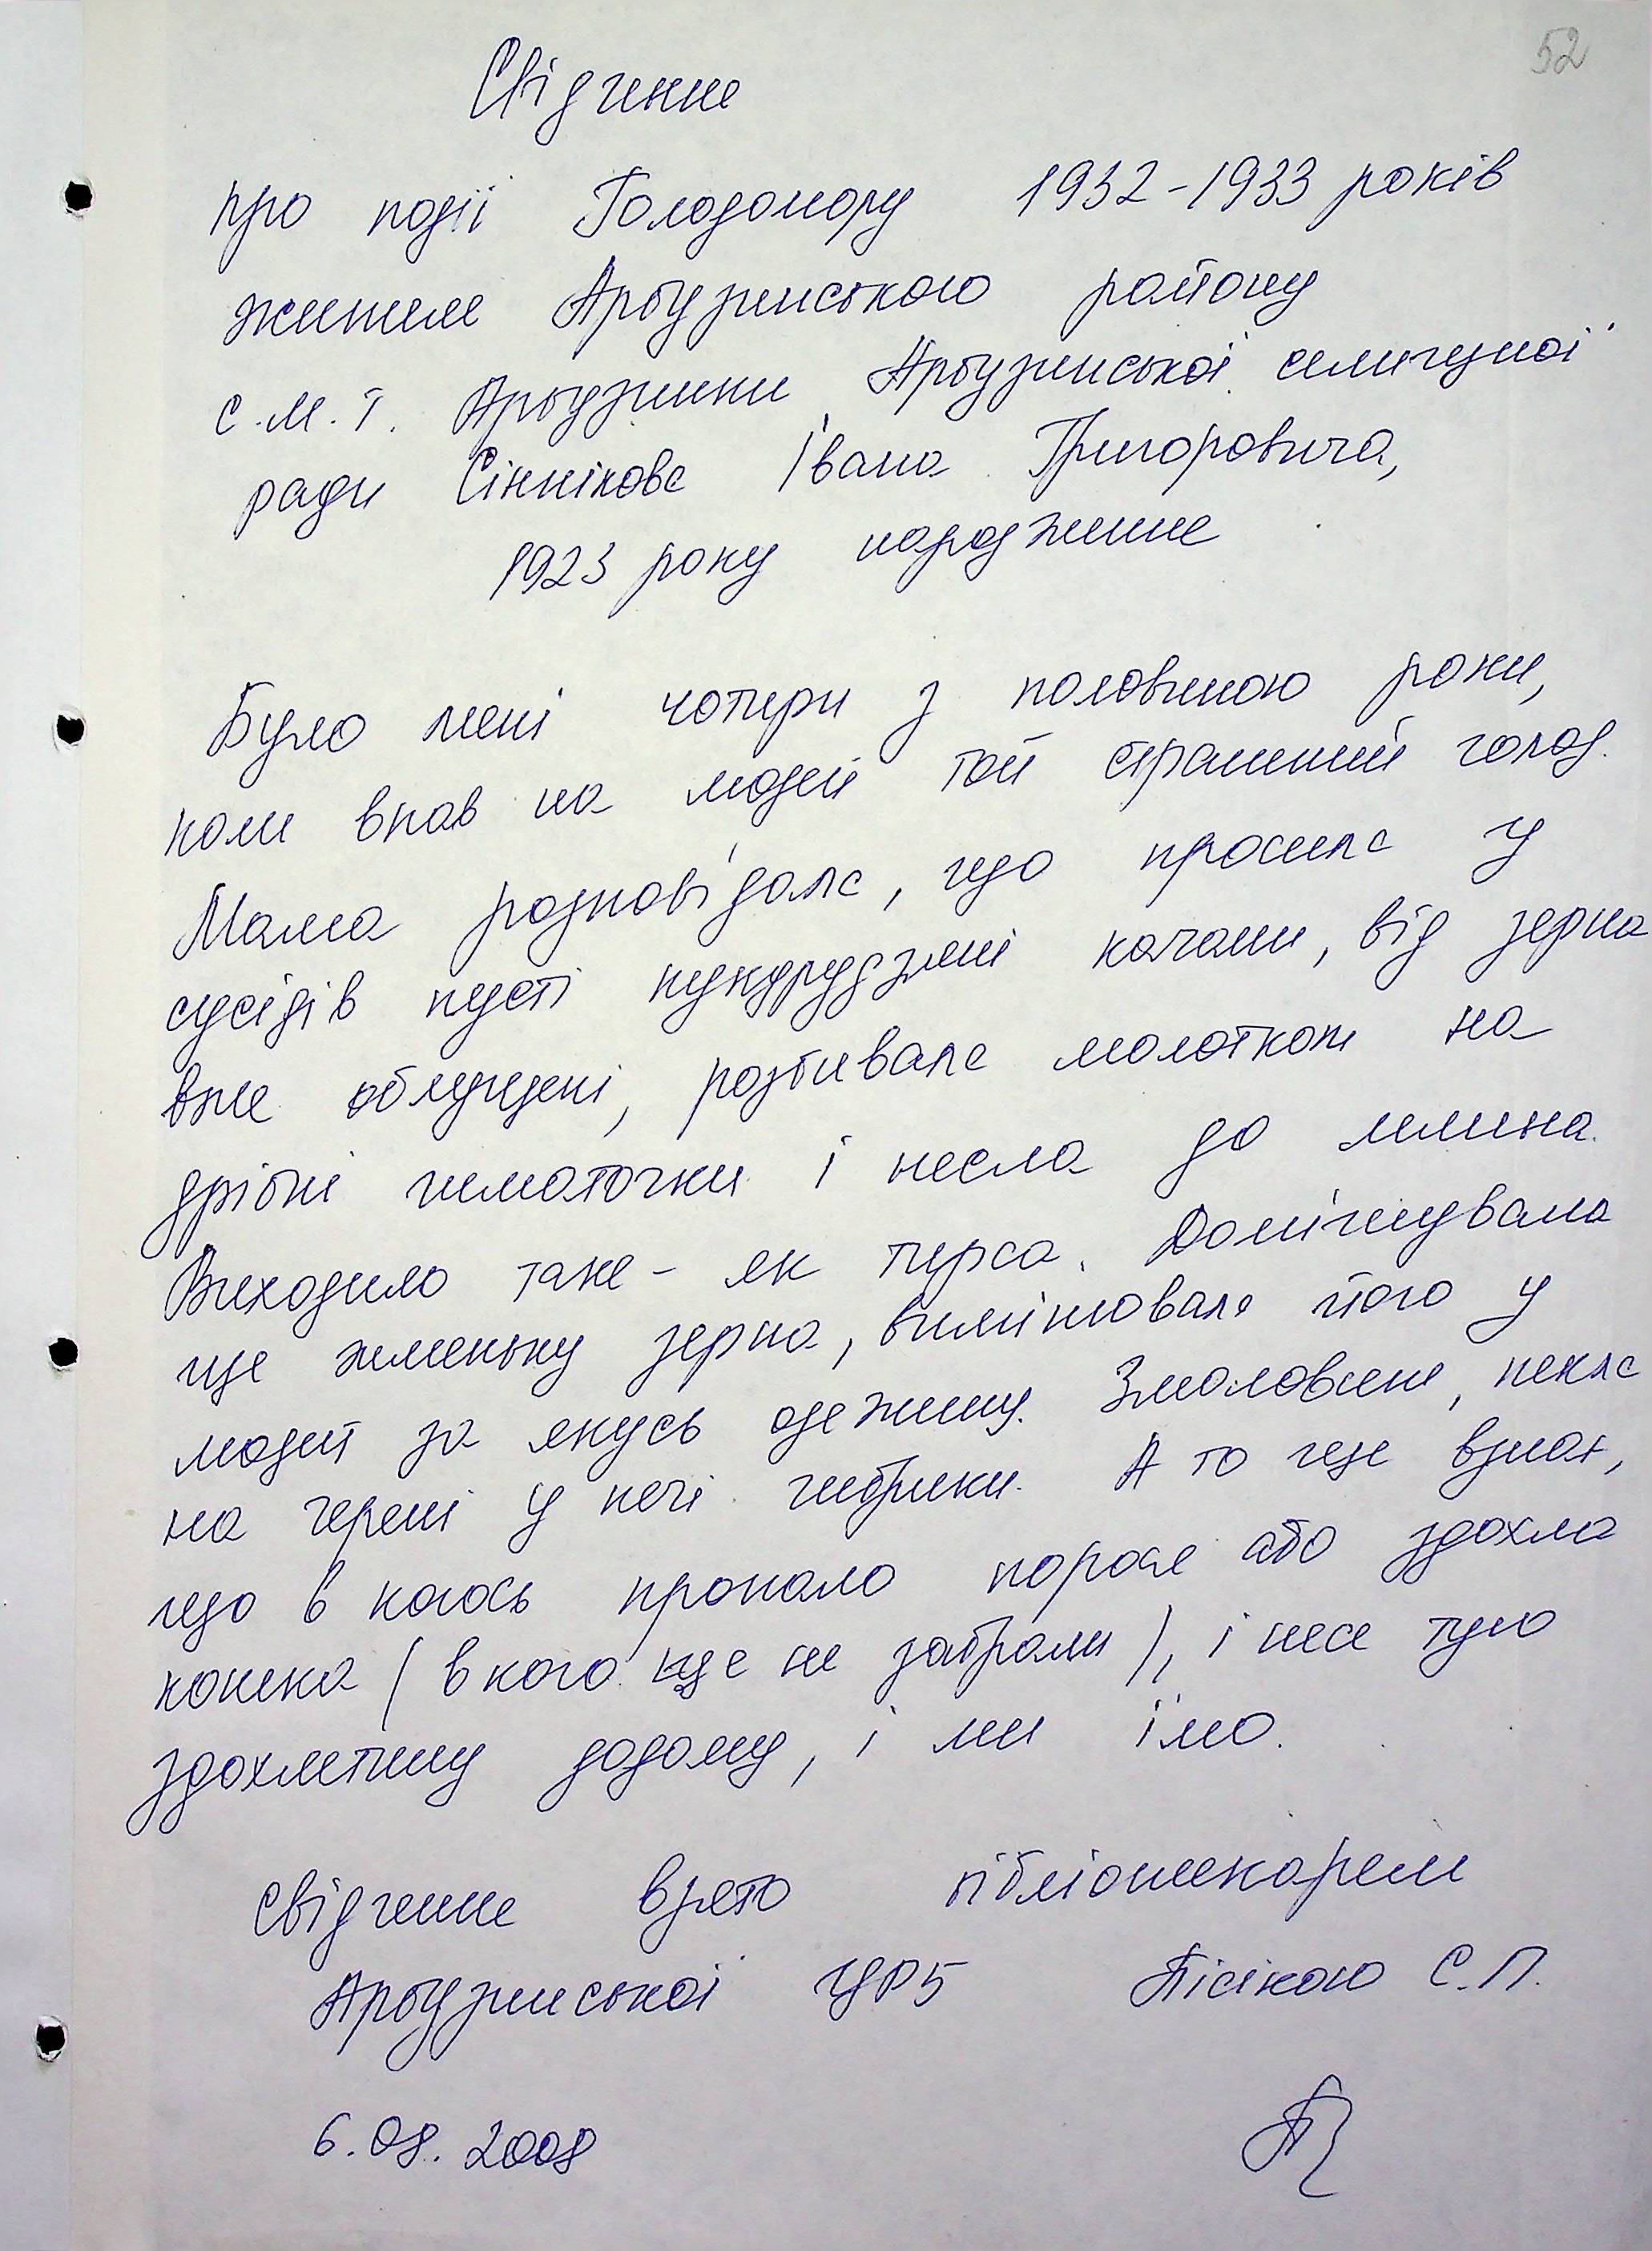 52
Свідчення
про події Голодомору 1932-1933 років
жителя Арбузинського району
с.м.т. Арбузинки Арбузинської селищної
ради Сіннікова Івана Григоровича,
1923 року народження
Було мені чотири з половиною роки,
коли впав на людей той страшний голод.
Мама розповідала, що просила у
сусідів пусті кукурудзяні качани, від зерна
вже облущені, розбивала молотком на
дрібні шматочки і несла до млина.
Виходило таке - як тирса. Домішувала
ще жменьку зерна, вимінювала його у
людей за якусь одежину. Змоловши, пекла
на черені у печі чибрики. А то ще взнає,
що в когось пропало порося або здохла
конека (в кого ще не забрали), і несе тую
здохлятину додому, і ми їмо.
Свідчення взято бібліотекарем
Арбузинської ЦРБ Пісікою С.П.
6.08.2008